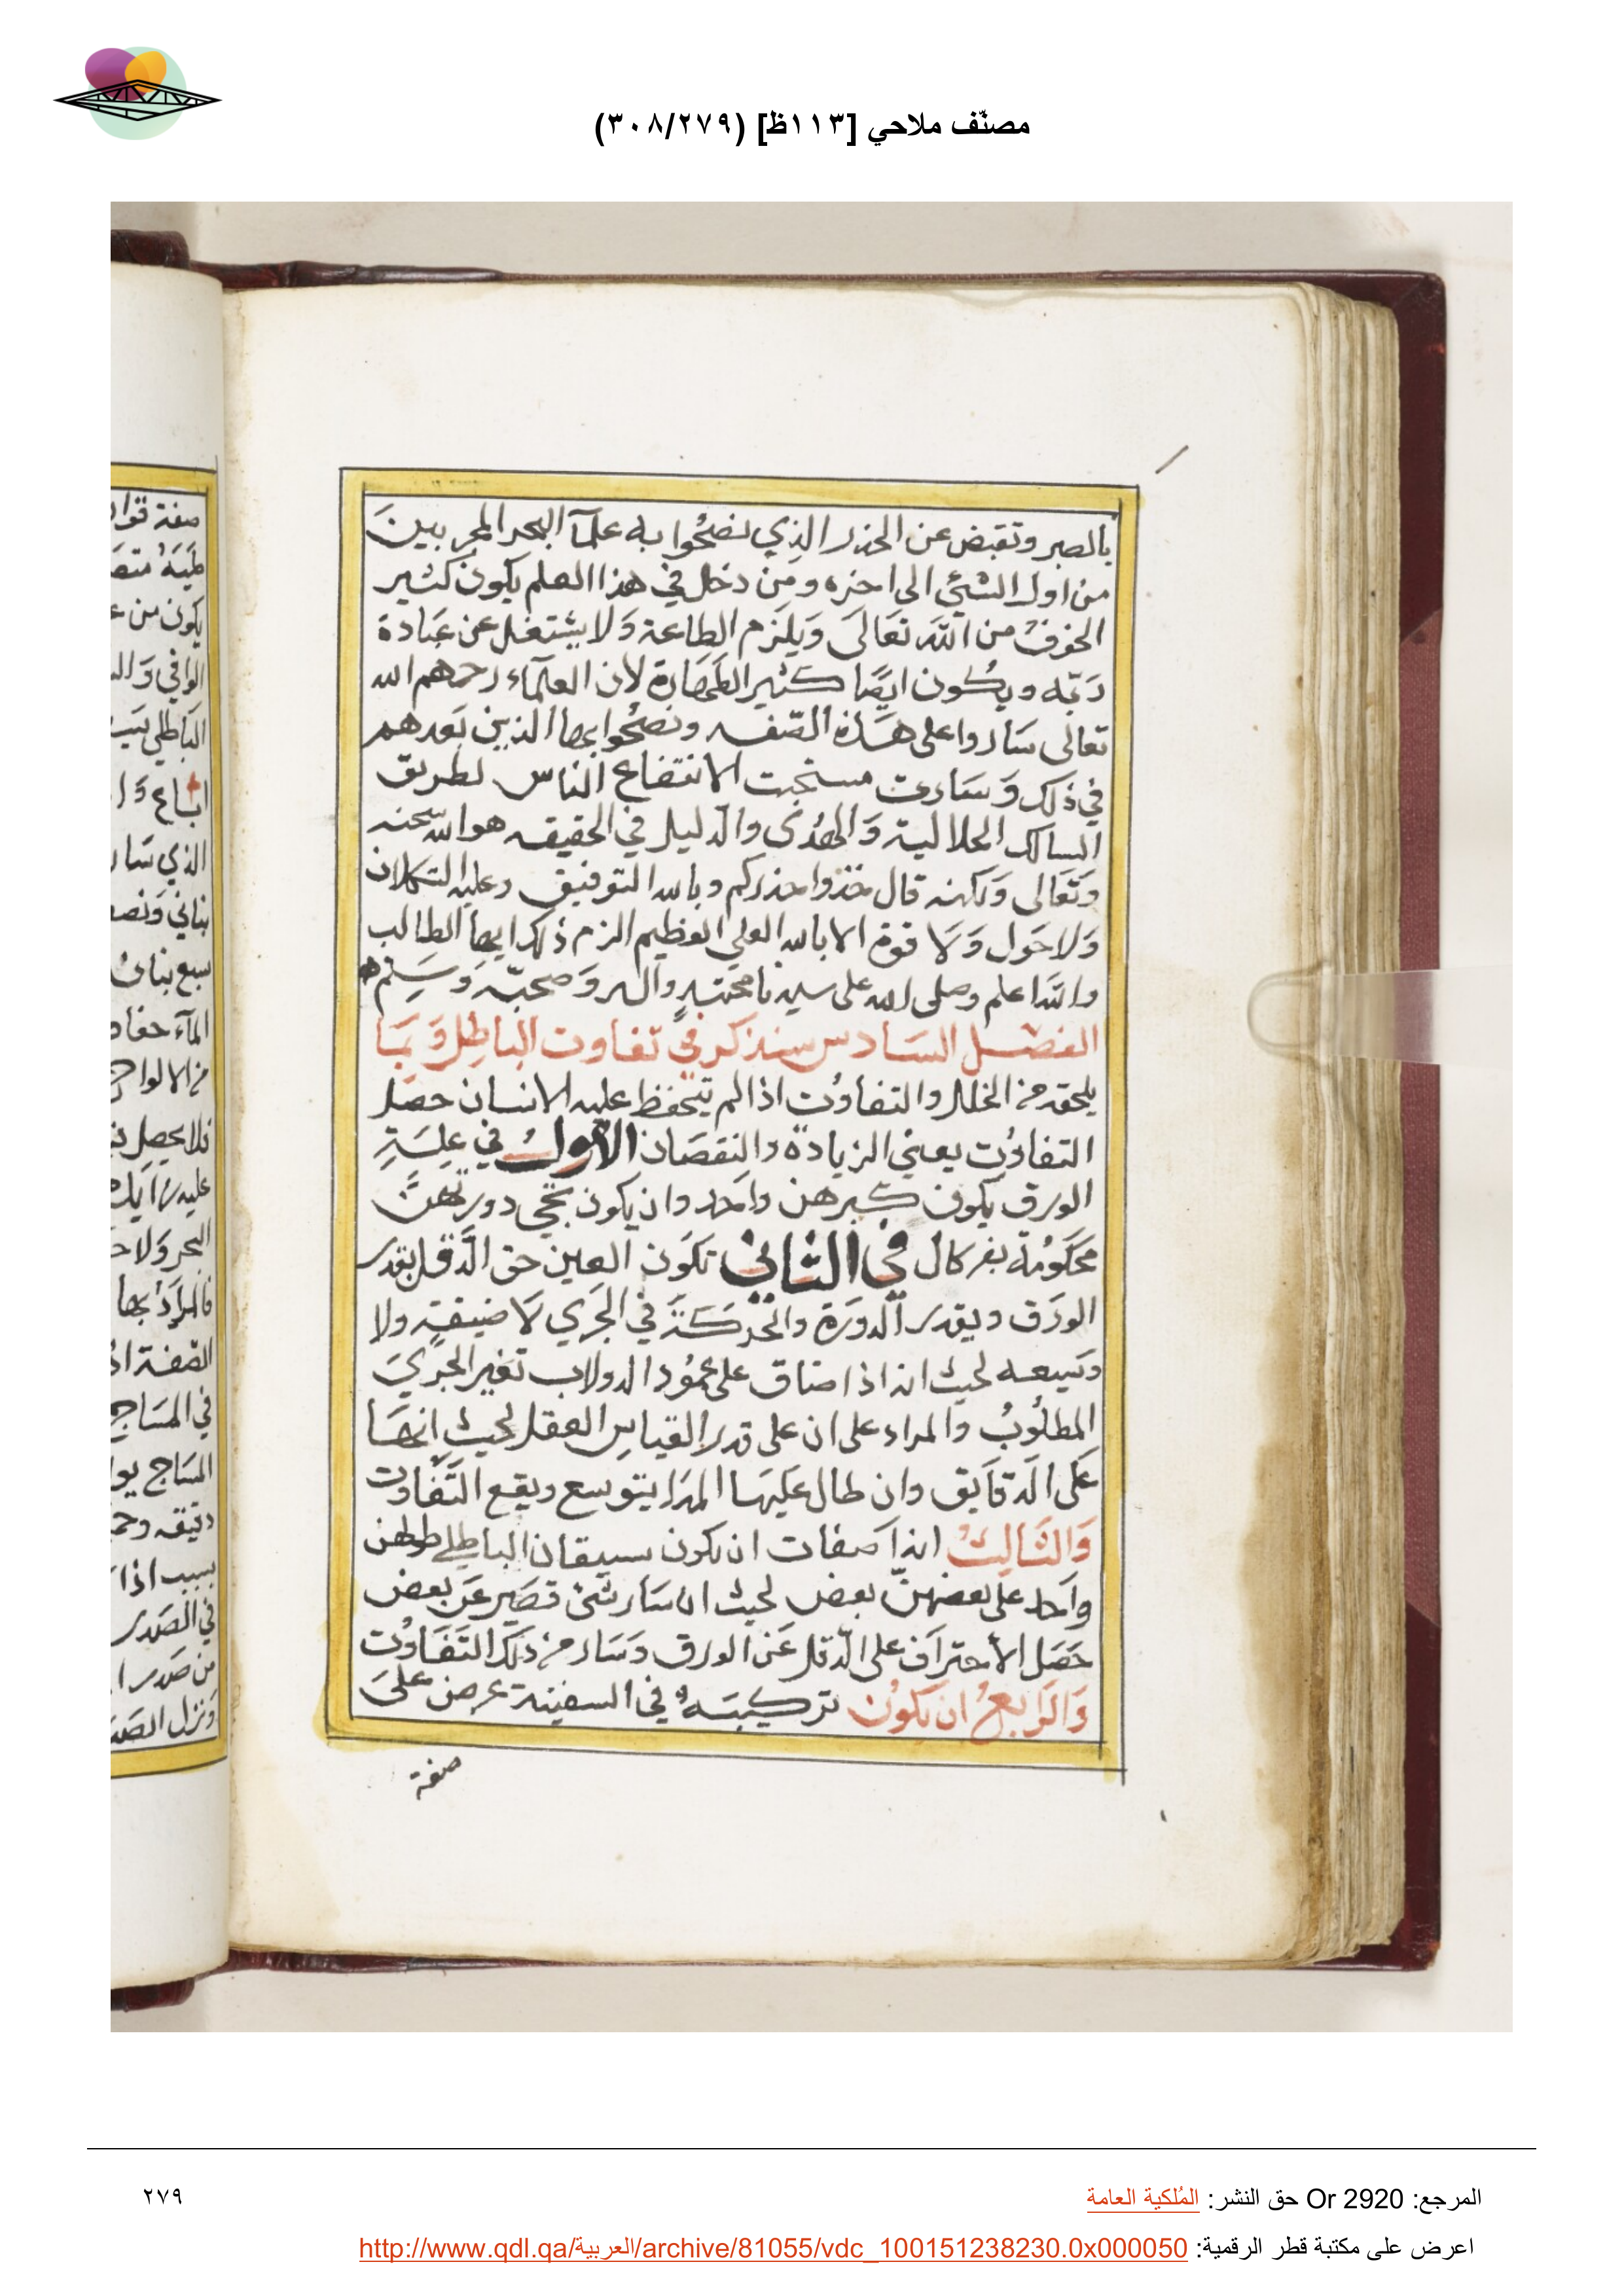 مصنّف ملاحي [١١٣ظ] (٣٠٨/٢٧٩)
بالصبر وتقبض عن الحذر الذي نصحوا به علمآ البحر المجربينَ
من اول الشئي الى اخره ومن دخل في هذا العلم يكون كثير
الخوف من الله تعَالىَ وَيلزم الطاعة وَلا يشتغل عن عبَادة
ربّه ويكون ايضًا كثير الطهَارة لان العلمآء رحمهم الله
تعالى سَاروا على هَذه الصّفه ونصحُوا بها الذين بعَدهم
في ذلك وَسَارت مستحبت لانتفاع الناس لطريق
السالك الجلالية وَالهُدى والدليل في الحقيقه هو الله سبحنه
وَتعَالى وَلكنه قال خذوا حذركم وبالله التوفيق وعليه التكلان
وَلا حَول وَلا قوة الا بالله العلي العظيم الزم ذلك ايها الطالب
والله اعلم وصلى الله على سيدنا محمّد وآله وَصحبّه وَسَلم
الفصل السَادس سنذكر في تفاوت الباطِل وَبمَا
يلحقه من الخلل والتفاوُت اذا لم يتحفظ عليه الانسان حصل
التفاوُت يعني الزيادة والنقصَان الاول في عِلسَةِ
الورق يكون كبرهن واحد وان يكون تجي دورتهنّ
محكومة بفركال في الثاني تكون العين حق الدَّقل بقدر
الورَق وبقدر الدورَة والحَركَة في الجرَي لاَ ضيقة ولا
وَسيعه لحيث انه اذا ضاق على عمُود الدولاب تغير الجريَ
المطلوبُ والمراد على ان على قدر القياس العقل لحيث انهَا
عَلى الدقآيق وان طال عَليهَا المدَا يتوسع ويقع التفَاوت
وَالثَالِثُ ايذا صفات ان تكون سيقان الباطلي طولهن
واحد على بعضهنّ بعض لحيث ان سَار شئ قصَير عَن بعض
حَصَل الاحتراف على الدّقل عَن الورق وَسَار من ذلك التفَاوُت
وَالرَابعُ ان يكوُن تركيبَهُ في السفينة عرض علىَ
صفة
المرجع: Or 2920 حق النشر: المُلكية العامة
٢٧٩
اعرض على مكتبة قطر الرقمية: http://www.qdl.qa/العربية/archive/81055/vdc_100151238230.0x000050